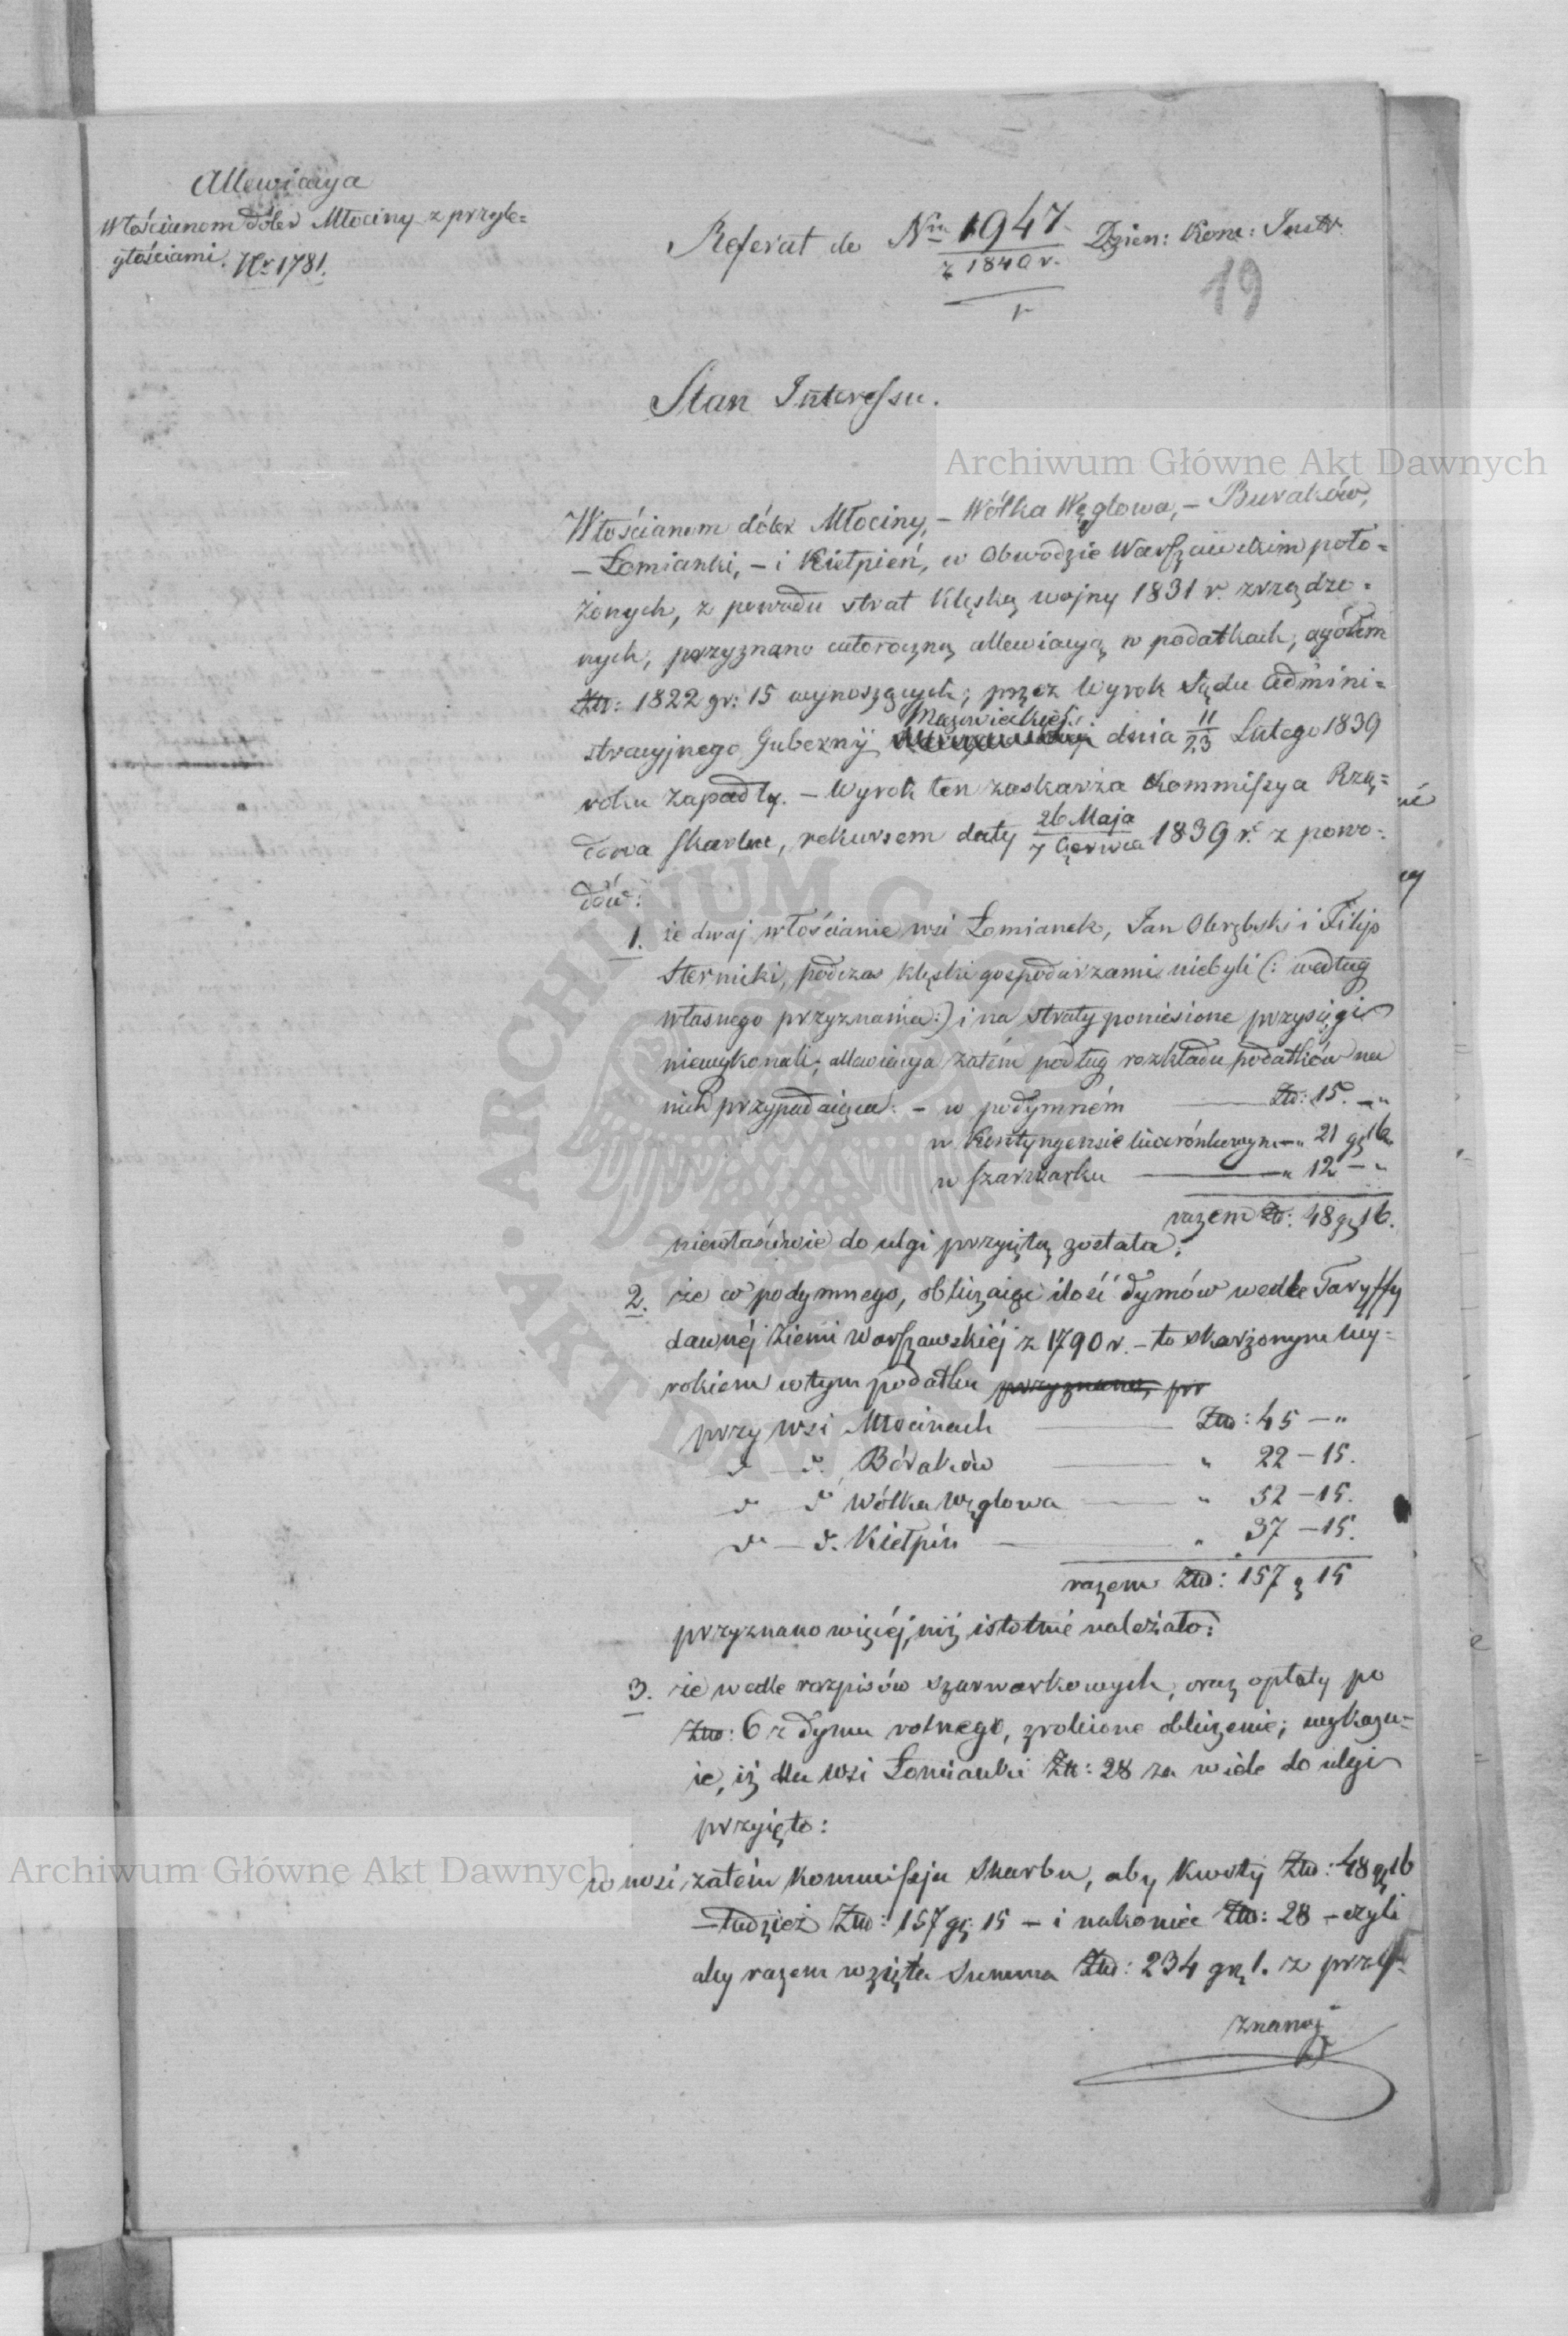 Allewiacya
Włościanom dóbr Młociny z przyle=
głościami. Nr 1781.
Referat do Nru 1947 Dzien: Kom: Instr:
z 1840 r.
19
Stan Interessu.
Archiwum Główne Akt Dawnych
Włościanom dóbr Młociny, – Wólka Węglowa, – Buraków,
– Łomianki, – i Kiełpień, w Obwodzie Warszawskim poło=
żonych, z powodu strat klęską wojny 1831 r. zrządzo=
nych, przyznano całoroczną allewiacyą w podatkach, ogółem
Złp: 1822 gr: 15 wynoszących; przez Wyrok Sądu Admini=
Mazowieckiej
stracyjnego Gubernij dnia 11/23 Lutego 1839
roku zapadły. – Wyrok ten zaskarża Kommissya Rzą=
dowa Skarbu, rekursem daty 26 Maja/7 Czerwca 1839 r. z powo=
dów:
1. że dwaj włościanie wsi Łomianek, Jan Obrębski i Filip
Sternicki, podczas klęski gospodarzami niebyli (: według
własnego przyznania :) i na straty poniesione przysięgi
niewykonali; allewiacya zatém podług rozkładu podatków na
nich przypadaiąca: – w podymném Złp: 15. – „
w Kontyngensie liwerónkowym – „ 21 g 16
w szarwarku „ 12 – „
razem Złp: 48 g 16.
niewłaściwie do ulgi przyiętą została;
2. że co podymnego, obliczaiąc ilość dymów wedle Taryffy
dawnéj Ziemi Warszawskiéj z 1790 r. – to skarżonym Wy=
rokiem w tym podatku przyznano, prz
przy wsi Młocinach Złp: 45 – „
d – d. Bóraków „ 22 – 15.
d – d. Wólka Węglowa „ 52 – 15.
d – d. Kiełpin „ 37 – 15.
razem Złp: 157 g 15
przyznano więcéj, niż istotnie należało:
3. że wedle rozpisów szarwarkowych, oraz opłaty po
Złp: 6 z dymu rolnego, zrobione obliczenie; wykazu=
ie, iż dla wsi Łomianki Złp: 28 za wiele do ulgi
przyięto:
Archiwum Główne Akt Dawnych
wnosi zatém Kommissja Skarbu, aby kwoty Złp: 48 g 16
– tudzież Złp: 157 gr 15 – i nakoniec Złp: 28 – czyli
aby razem wzięta Summa Złp: 234 gr 1. z przy=
znanéj